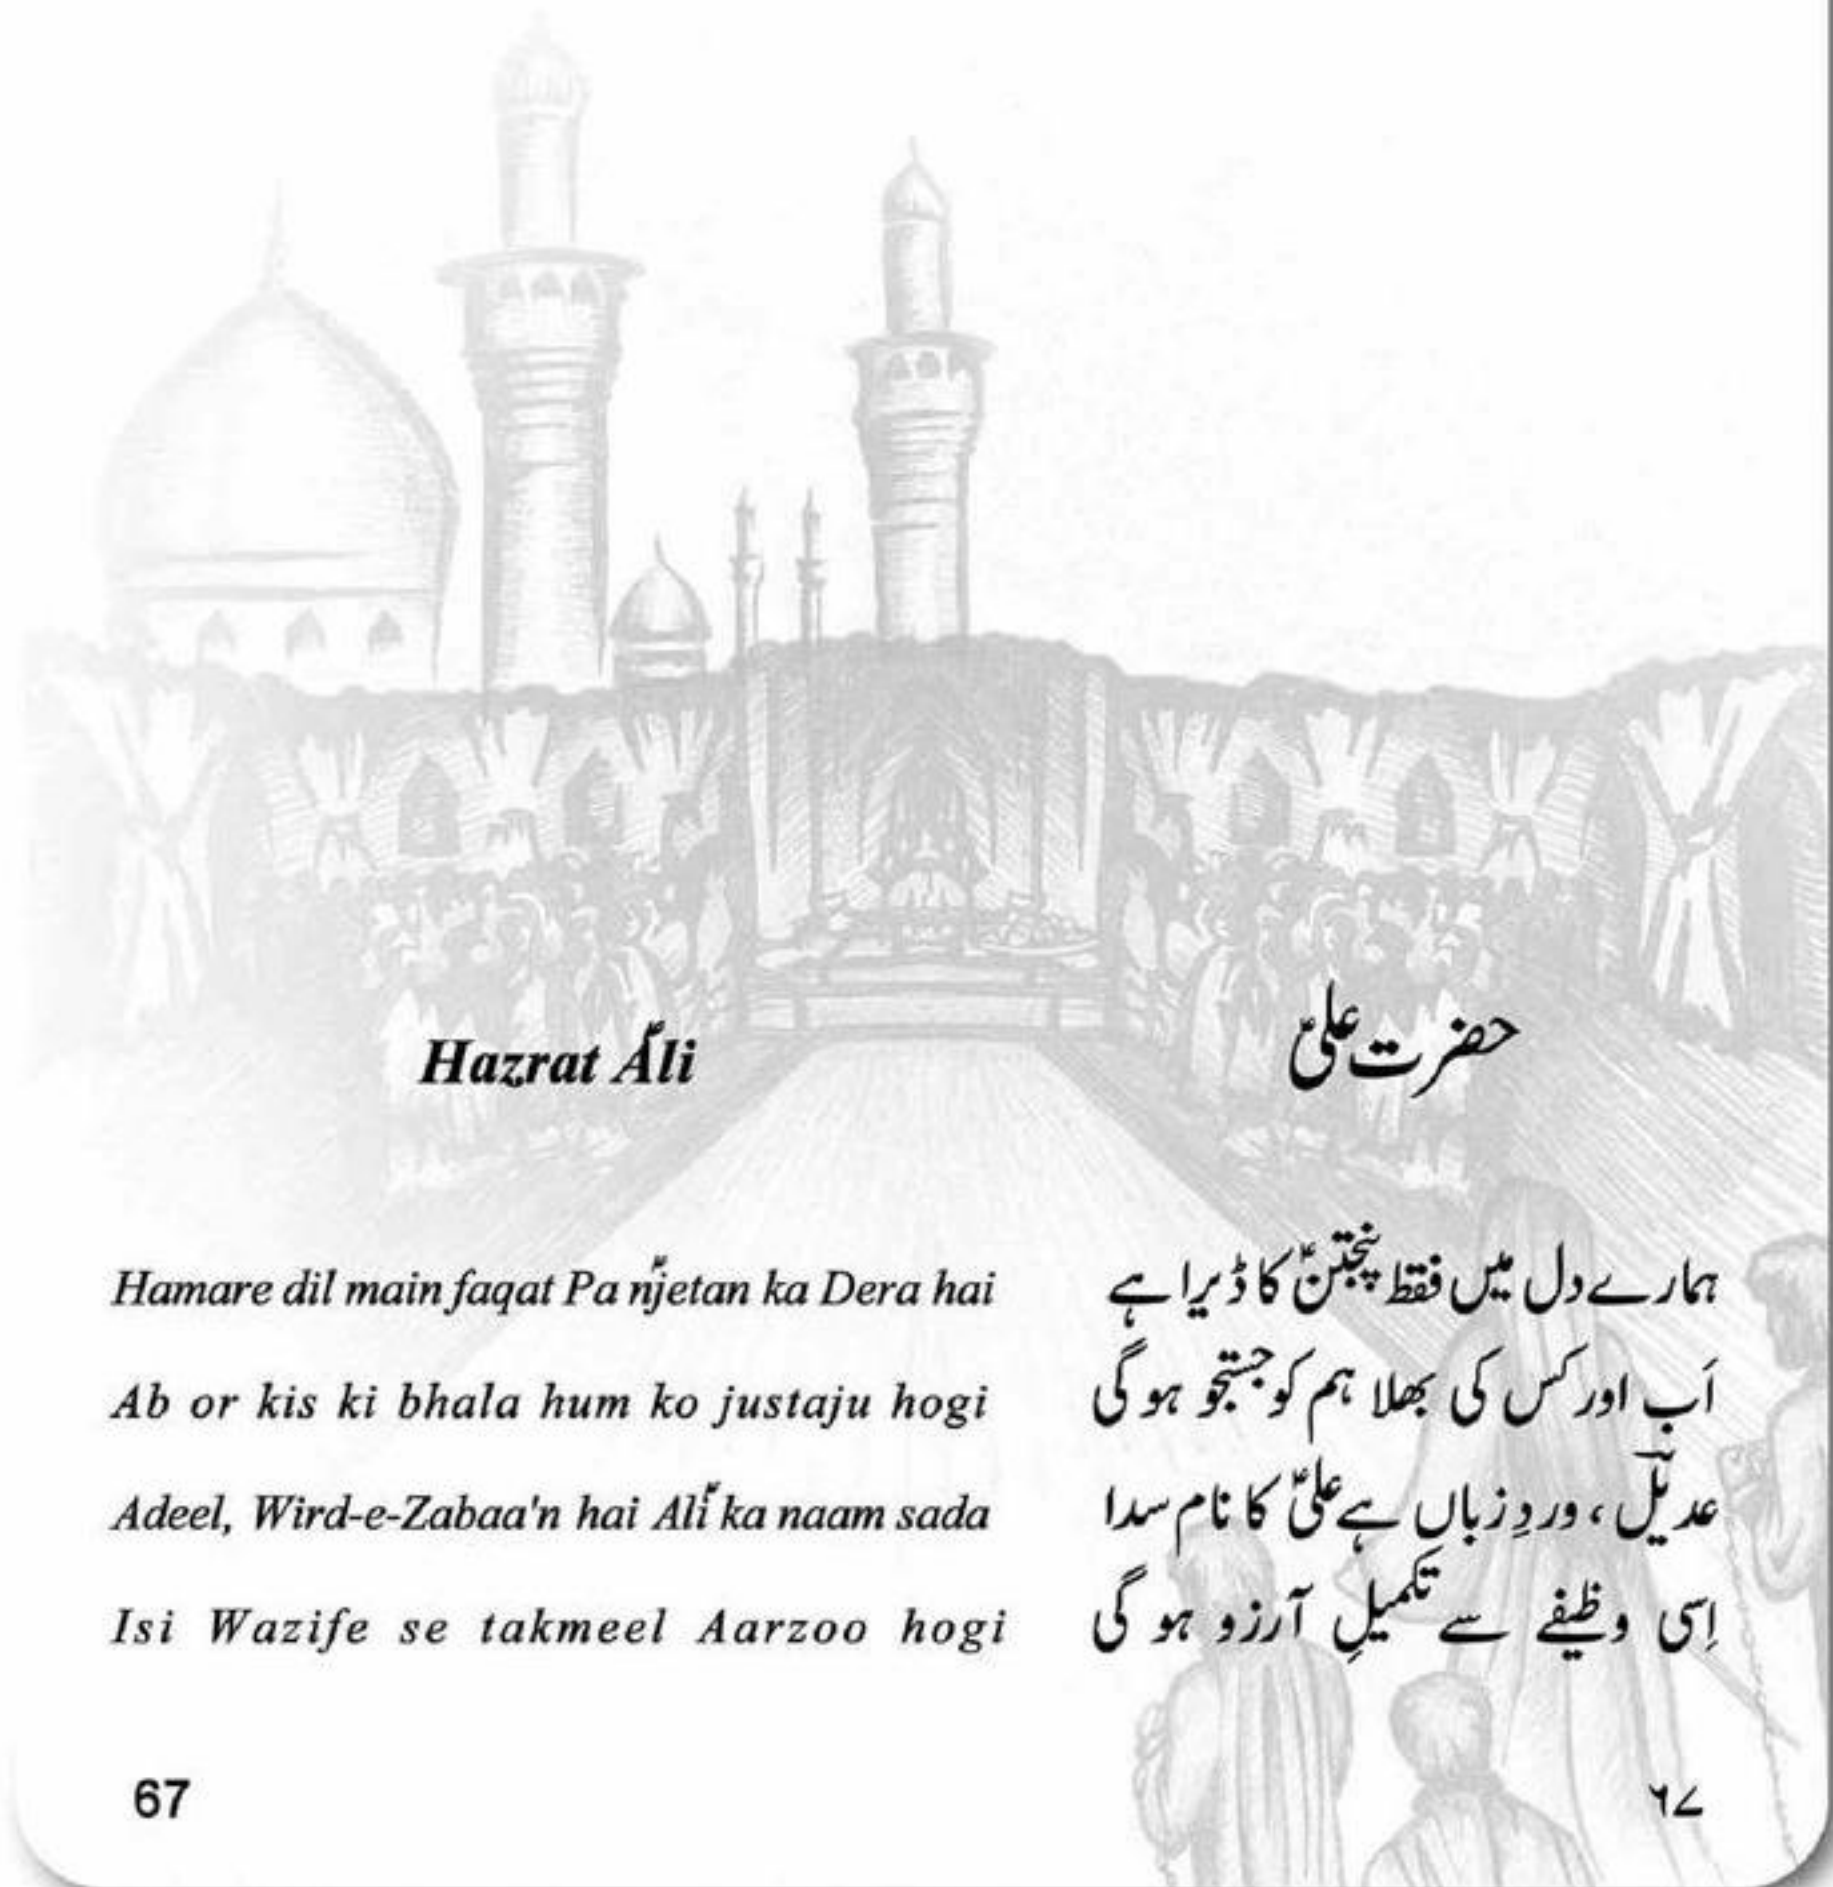 Hazrat Áli
حضرت علیؑ
Hamare dil main faqat Pa njetan ka Dera hai
Ab or kis ki bhala hum ko justaju hogi
Adeel, Wird-e-Zabaa'n hai Ali ka naam sada
Isi Wazife se takmeel Aarzoo hogi
ہمارے دل میں فقط پنجتنؑ کا ڈیرا ہے
اَب اور کس کی بھلا ہم کو جستجو ہوگی
عدیلؔ ، وردِ زباں ہے علیؑ کا نام سدا
اِسی وظیفے سے تکمیلِ آرزو ہوگی
67
۶۷